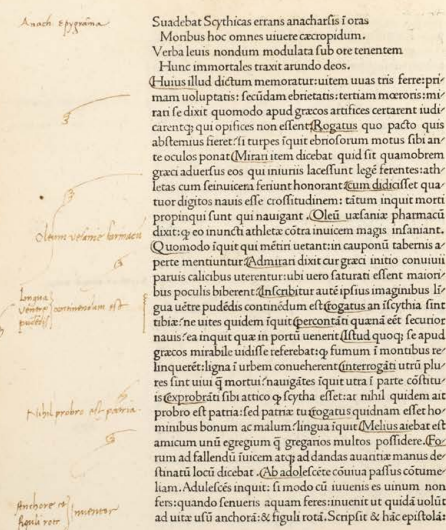 Anach. epygrāma
Suadebat Scythicas errans anacharsis ī oras
Moribus hoc omnes uiuere cæcropidum.
Verba leuis nondum modulata sub ore tenentem
Hunc immortales traxit arundo deos.
Huius illud dictum memoratur: uitem uuas tris ferre: pri-
mam uoluptatis: secūdam ebrietatis: tertiam mœroris: mi-
rari se dixit quomodo apud græcos artifices certarent iudi-
carentq; qui opifices non essent. Rogatus quo pacto quis
abstemius fieret: si turpes īquit ebriosorum motus sibi an-
te oculos ponat. Mirari item dicebat quid sit quamobrem
græci aduersus eos qui iniuriis lacessunt legē ferentes: ath-
letas cum seinuicem feriunt honorant. cum didicisset qua-
tuor digitos nauis esse crossitudinem: tātum inquit morti
propinqui sunt qui nauigant. Oleū uæsaniæ pharmacū
dixit: q eo inuncti athletæ cōtra inuicem magis insaniant.
Oleum uesaniæ
Quomodo īquit qui mētiri uetant: in cauponū tabernis a-
perte mentiuntur: Admirari dixit cur græci initio conuiuii
paruis calicibus uterentur: ubi uero saturati essent maiori-
bus poculis biberent. Inscribitur autē ipsius imaginibus li-
gua uētre pudēdis continēdum est: rogatus an iscythia sint
lingua
continendum est
tibiæ: ne uites quidem īquit: percontāti quænā eēt securior
nauis: ea inquit quæ in portū uenerit. Istud quoq; se apud
græcos mirabile uidisse referebat: q fumum ī montibus re-
linquerēt: ligna ī urbem conueherent: interrogāti utrū plu-
res sint uiui q mortui: nauigātes īquit utra ī parte cōstitu-
is: exprobrāti sibi attico q scytha esset: at nihil quidem ait
probro est patria: sed patriæ tu: rogatus quidnam esset ho-
Nihil probro est patria
minibus bonum ac malum: lingua īquit. Melius aiebat est
amicum unū egregium q gregarios multos possidere. Fo-
rum ad fallendū iuicem atq; ad dandas auaritiæ manus de-
stinatū locū dicebat. Ab adolescēte cōuiua passus cōtume-
liam. Adulescēs inquit: si modo cū iuuenis es uinum non
fers: quando senueris aquam feres: inuenit ut quidā uolūt
ad uitæ usū anchorā: & figuli rotā. Scripsit & hāc epistolā:
Anchore et
figuli rote
inuentor